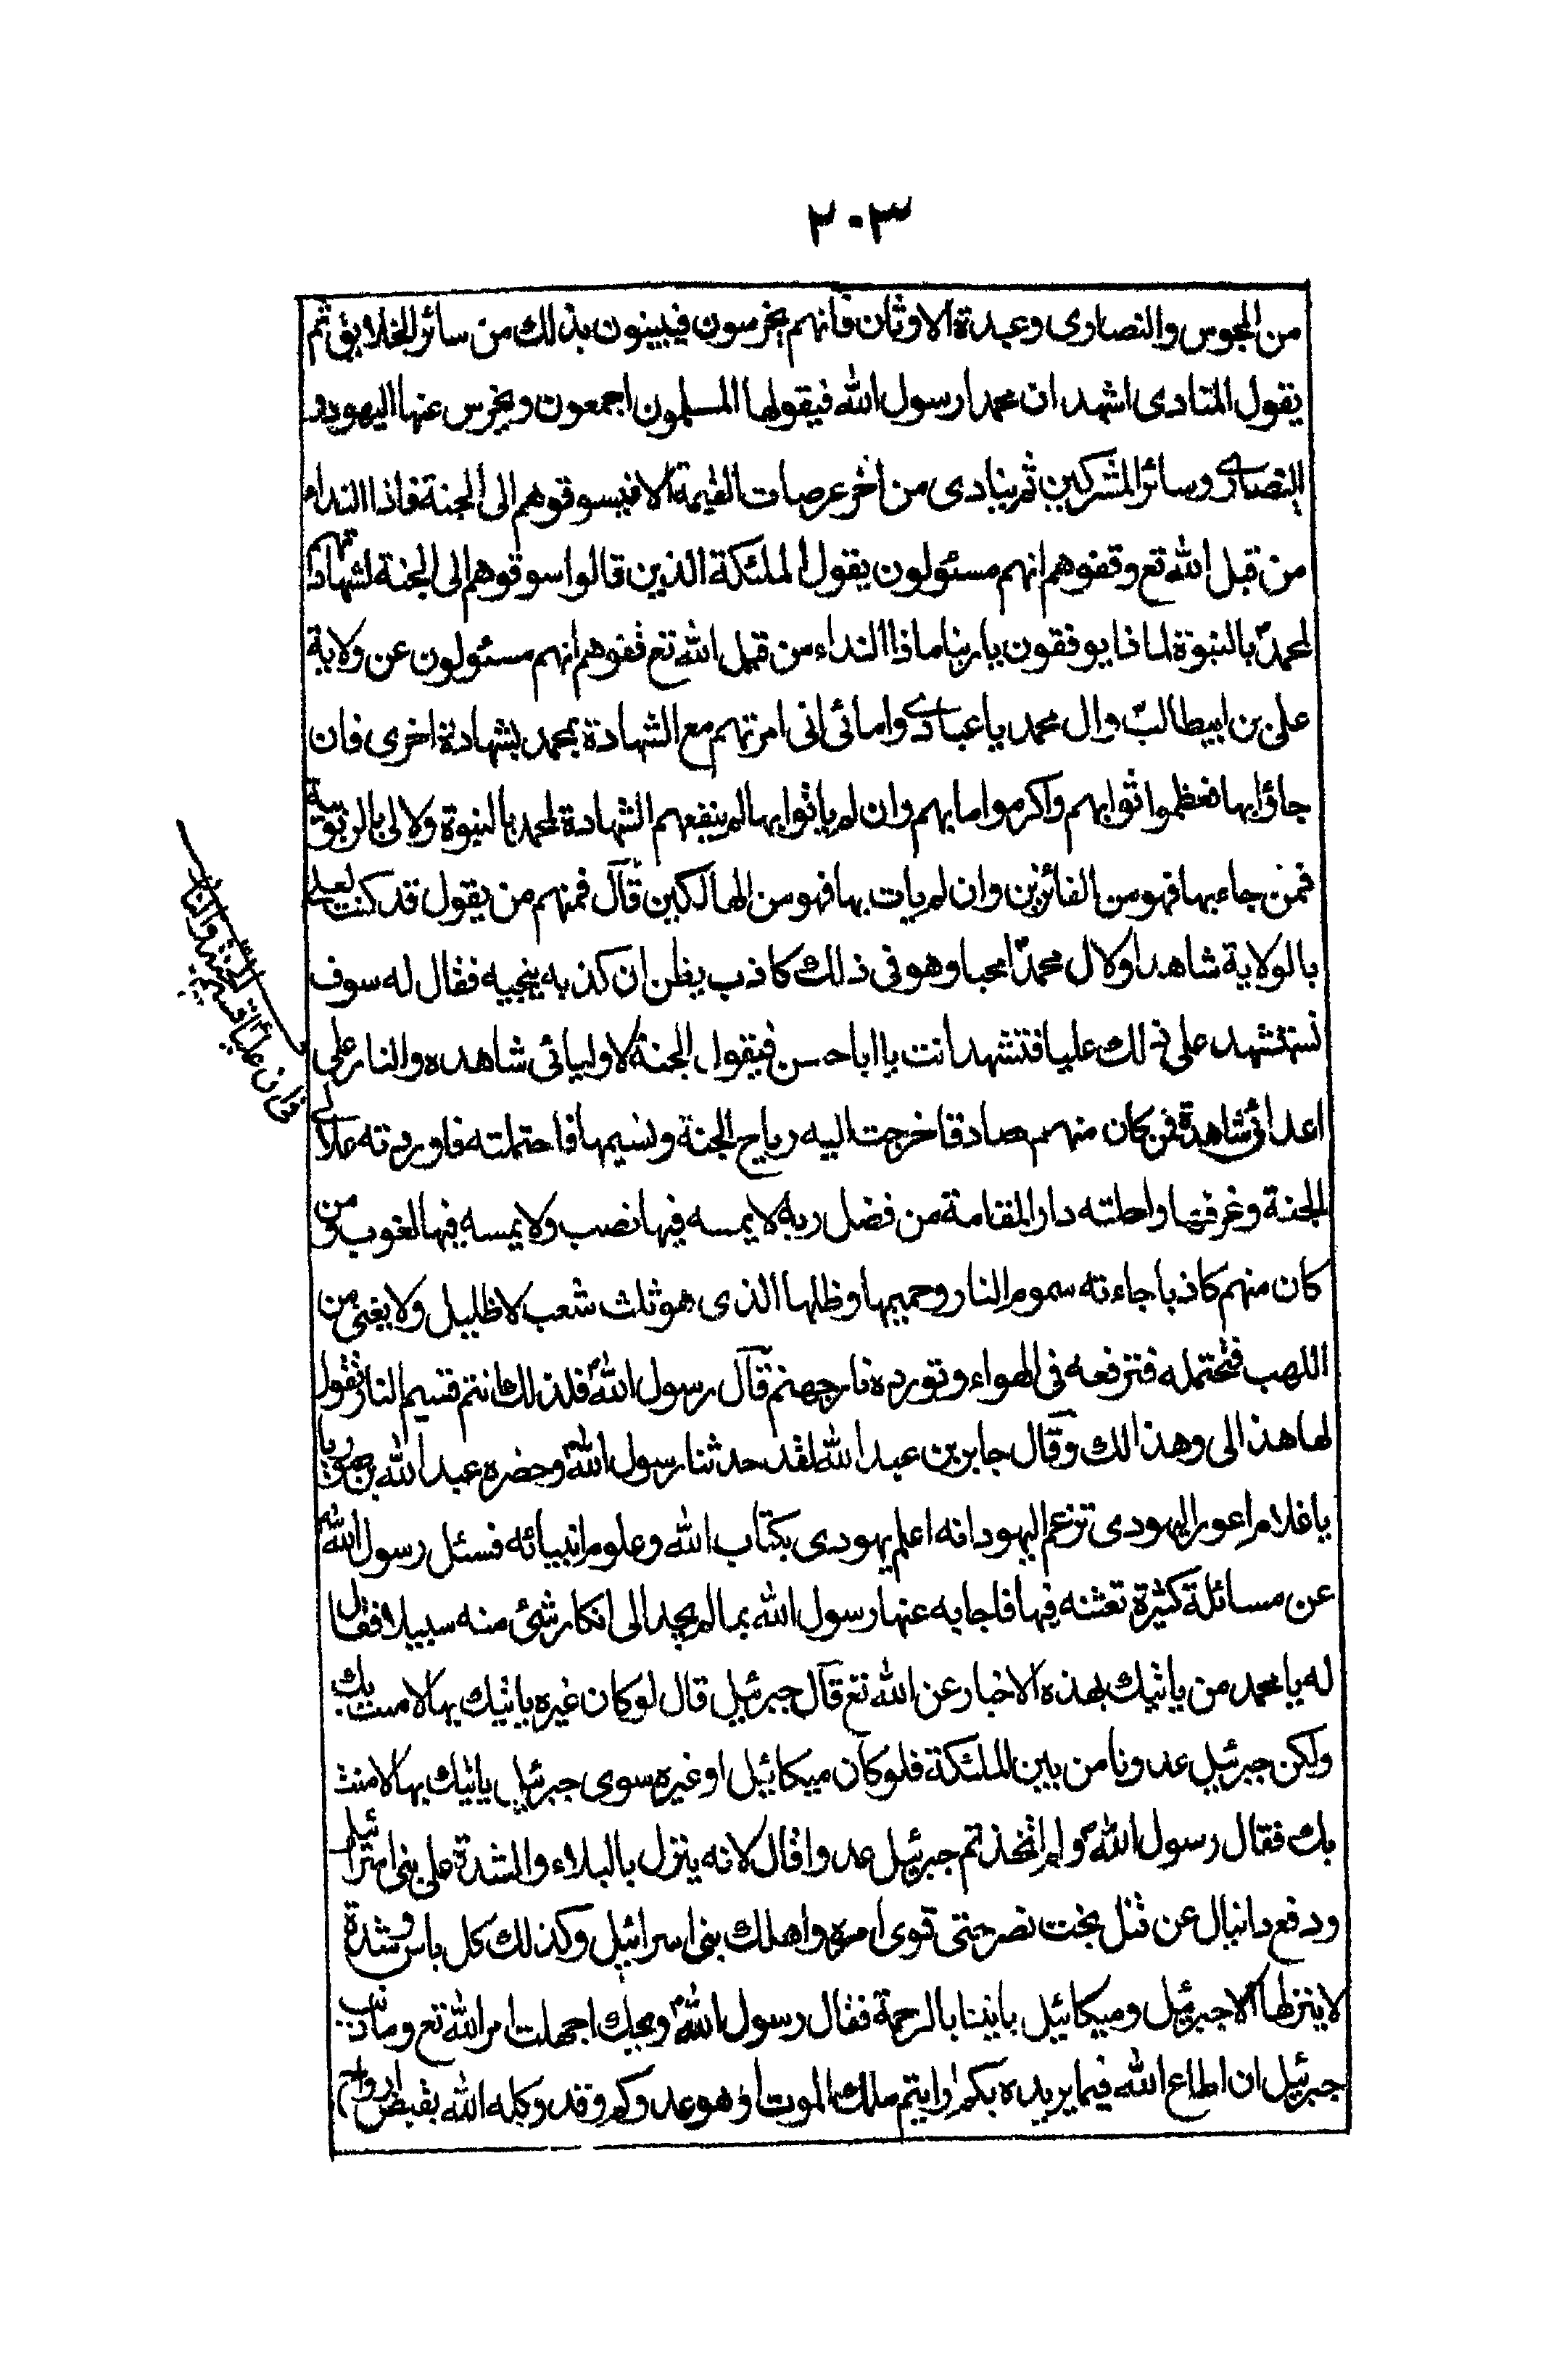 ٢٠٣
من المجوس والنصارى وعبدة الاوثان فانهم يخرسون فيبينون بذلك من سائر الخلايق ثم
يقول المنادى اشهد ان محمدا رسول الله فيقولها المسلمون اجمعون ويخرس عنها اليهود و
النصارى وسائر المشركين ثم ينادى من اخر عرصات القيمة الا فيسوقوهم الى الجنة فاذا النداء
من قبل الله تع وقفوهم انهم مسئولون يقول الملئكة الذين قالوا سوقوهم الى الجنة لشهادتهم
لمحمدؐ بالنبوة لماذا يوفقون يا ربنا ماذا النداء من قبل الله تع قفوهم انهم مسئولون عن ولاية
على بن ابيطالبؑ وال محمد يا عبادى وامائى انى امرتهم مع الشهادة بمحمد بشهادة اخرى فان
جاؤا بها فعظموا ثوابهم واكرموا مابهم وان لم ياتوا بها لم ينفعهم الشهادة لمحمد بالنبوة ولا لى بالربوبية
فمن جاء بها فهو من الفائزين وان لم يات بها فهو من الهالكين قال فمنهم من يقول قد كنت لعلى
بالولاية شاهدا ولال محمدؐ محبا وهو فى ذلك كاذب يظن ان كذبه ينجيه فقال له سوف
نستشهد على ذلك عليا فتشهد انت يا ابا حسن فيقول الجنة لاوليائى شاهده والنار على
اعدائى شاهدة فمن كان منهم صادقا خرجت اليه رياح الجنة ونسيمها فاحتملته فاوردته علالى
الجنة وغرفها واحلته دار المقامة من فضل ربه لا يمسه فيها نصب ولا يمسه فيها لغوب ومن
كان منهم كاذبا جاءته سموم النار وحميمها وظلها الذى هو ثلث شعب لا ظليل ولا يغنى من
اللهب فتحتمله فترفعه فى الهواء وتورده نار جهنم قال رسول اللهؐ فلذلك انتم قسيم النار تقول
لها هذا لى وهذا لك وقال جابر بن عبد الله لقد حدثنا رسول اللهؐ وحضره عبد الله بن صوريا
يا غلام اعور اليهودى تزعم اليهود انه اعلم يهودى بكتاب الله وعلوم انبيائه فسئل رسول اللهؐ
عن مسائلة كثيرة تعنته فيها فاجابه عنها رسول الله بما لم يجد الى انكار شئ منه سبيلا فقال
له يا محمد من ياتيك بهذه الاخبار عن الله تع قال جبرئيل قال لو كان غيره ياتيك بها لامنت بك
ولكن جبرئيل عدونا من بين الملئكة فلو كان ميكائيل او غيره سوى جبرئيل ياتيك بها لامنت
بك فقال رسول اللهؐ ولم اتخذتم جبرئيل عدوا قال لانه ينزل بالبلاء والشدة على بنى اسرائيل
ودفع دانيال عن قتل بخت نصر حتى قوى امره واهلك بنى اسرائيل وكذلك كل باس وشدة
لا ينزلها الا جبرئيل وميكائيل ياتينا بالرحمة فقال رسول اللهؐ ويحك اجهلت امر الله تع وما ذنب
جبرئيل ان اطاع الله فيما يريده بكم ارايتم ملك الموت اوهو عدوكم وقد وكله الله بقبض ارواح